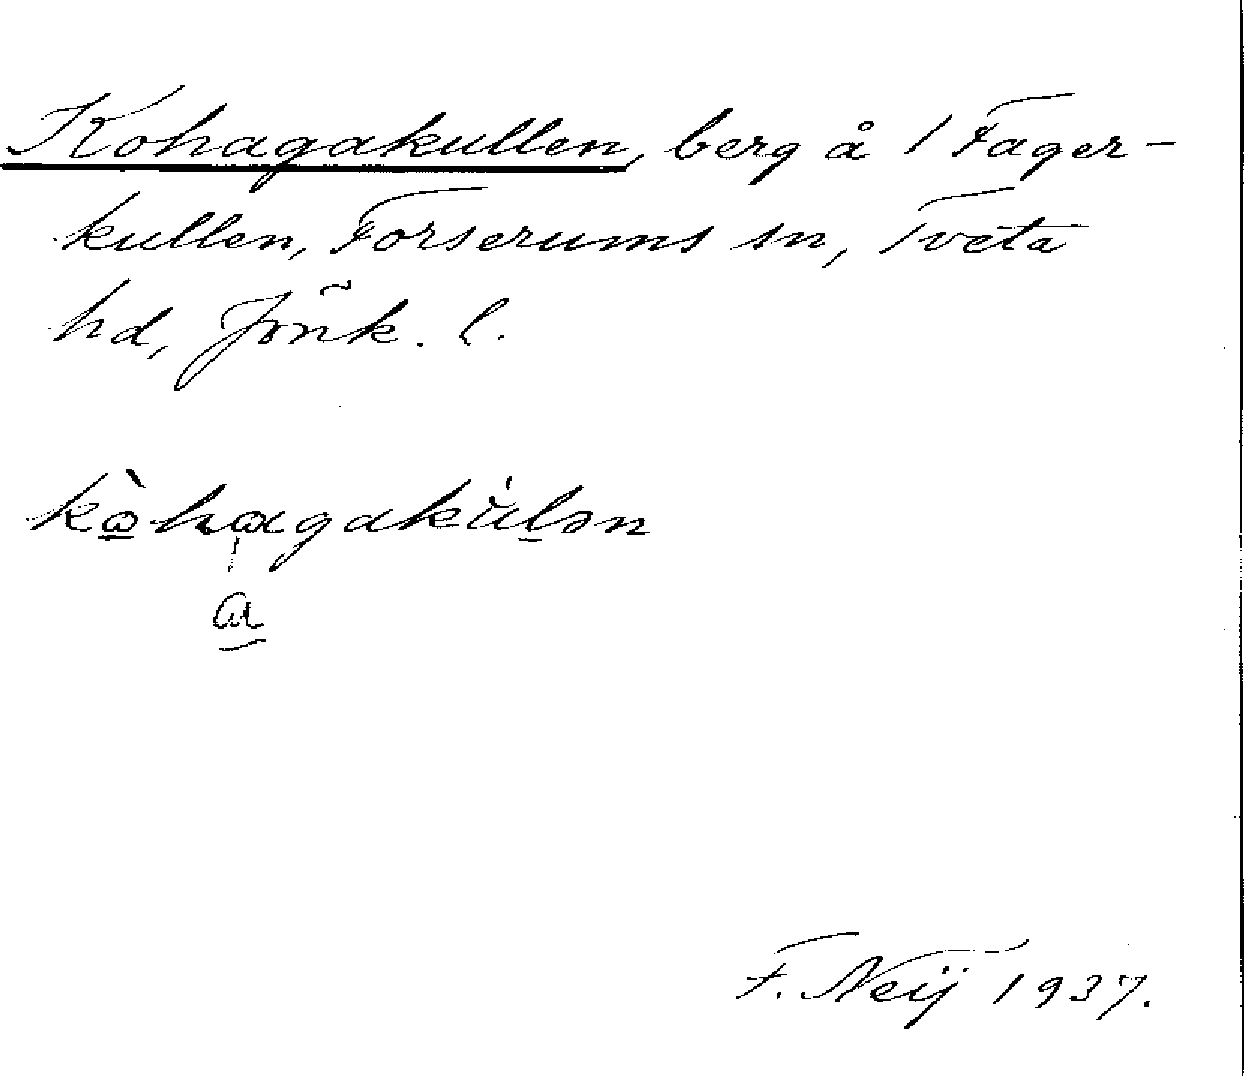 Kohagakullen, berg å 1 Fager-
kullen, Forserums sn, Tveta
hd, Jönk. l.
kòhagakúlən
a
F. Neij 1937.